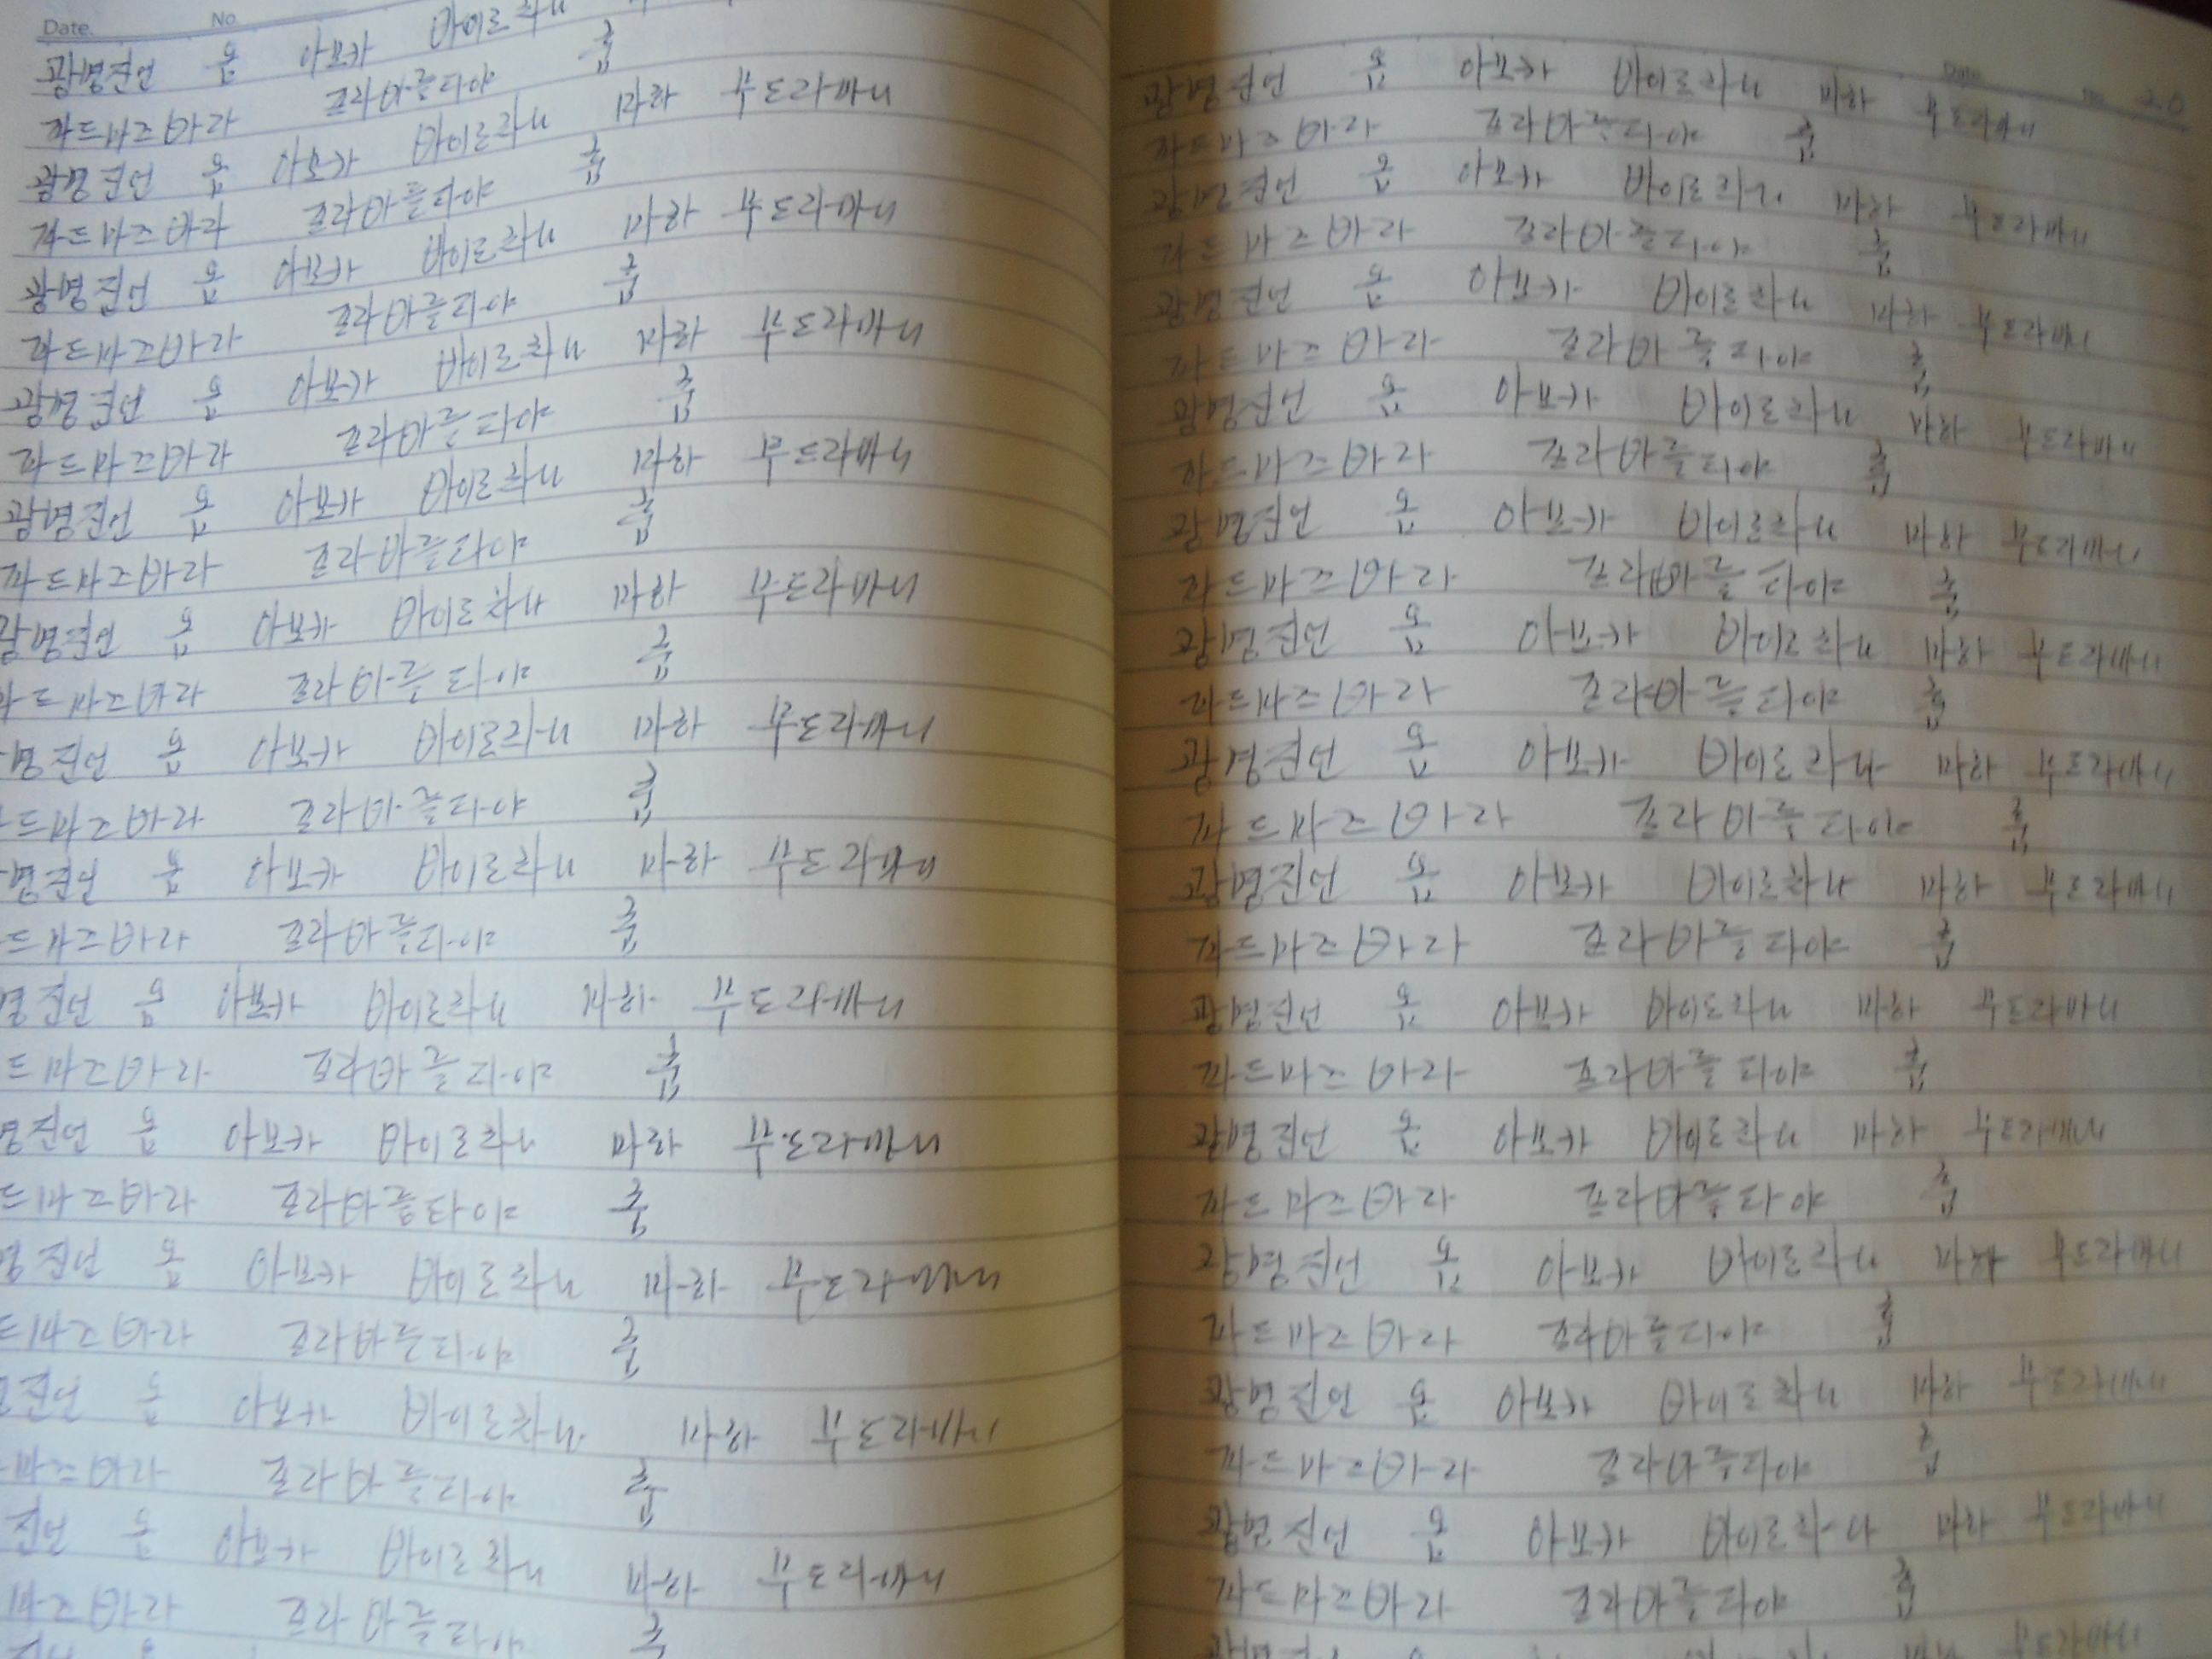 Date. No.
광명진언 옴 아모카 바이로차나
파드마즈바라 프라바를타야 훔
광명진언 옴 아모카 바이로차나 마하 무드라마니
파드마즈바라 프라바를타야 훔
광명진언 옴 아모카 바이로차나 마하 무드라마니
파드마즈바라 프라바를타야 훔
광명진언 옴 아모카 바이로차나 마하 무드라마니
파드마즈바라 프라바를타야 훔
광명진언 옴 아모카 바이로차나 마하 무드라마니
파드마즈바라 프라바를타야 훔
광명진언 옴 아모카 바이로차나 마하 무드라마니
파드마즈바라 프라바를타야 훔
명진언 옴 아모카 바이로차나 마하 무드라마니
드마즈바라 프라바를타야 훔
명진언 옴 아모카 바이로차나 마하 무드라마니
드마즈바라 프라바를타야 훔
명진언 옴 아모카 바이로차나 마하 무드라마니
드마즈바라 프라바를타야 훔
명진언 옴 아모카 바이로차나 마하 무드라마니
드마즈바라 프라바를타야 훔
명진언 옴 아모카 바이로차나 마하 무드라마니
드마즈바라 프라바를타야 훔
진언 옴 아모카 바이로차나 마하 무드라마니
마즈바라 프라바를타야 훔
진언 옴 아모카 바이로차나 마하 무드라마니
마즈바라 프라바를타야 훔
Date No.
광명진언 옴 아모카 바이로차나 마하 무드라마니
파드마즈바라 프라바를타야 훔
광명진언 옴 아모카 바이로차나 마하 무드라마니
파드마즈바라 프라바를타야 훔
광명진언 옴 아모카 바이로차나 마하 무드라마니
파드마즈바라 프라바를타야 훔
광명진언 옴 아모카 바이로차나 마하 무드라마니
파드마즈바라 프라바를타야 훔
광명진언 옴 아모카 바이로차나 마하 무드라마니
파드마즈바라 프라바를타야 훔
광명진언 옴 아모카 바이로차나 마하 무드라마니
파드마즈바라 프라바를타야 훔
광명진언 옴 아모카 바이로차나 마하 무드라마니
파드마즈바라 프라바를타야 훔
광명진언 옴 아모카 바이로차나 마하 무드라마니
파드마즈바라 프라바를타야 훔
광명진언 옴 아모카 바이로차나 마하 무드라마니
파드마즈바라 프라바를타야 훔
광명진언 옴 아모카 바이로차나 마하 무드라마니
파드마즈바라 프라바를타야 훔
광명진언 옴 아모카 바이로차나 마하 무드라마니
파드마즈바라 프라바를타야 훔
광명진언 옴 아모카 바이로차나 마하 무드라마니
파드마즈바라 프라바를타야 훔
광명진언 옴 아모카 바이로차나 마하 무드라마니
파드마즈바라 프라바를타야 훔
무드라마니